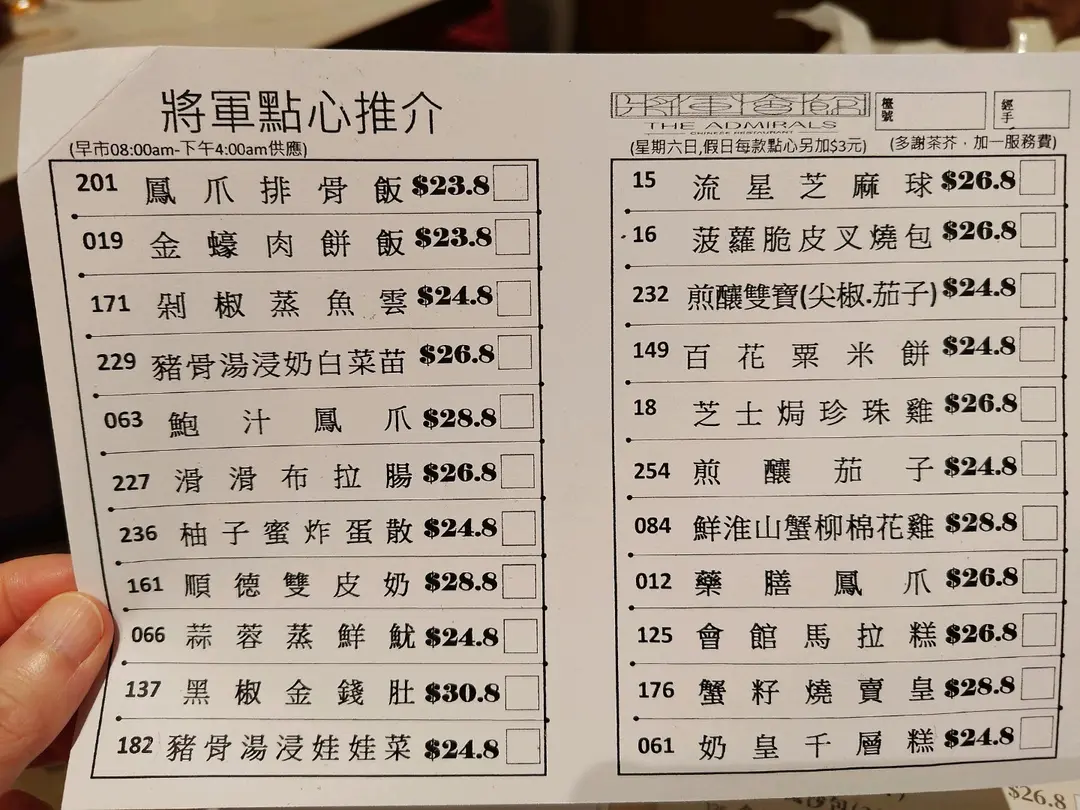 將軍點心推介
(早市08:00am-下午4:00am供應)
201 鳳爪排骨飯 $23.8
019 金蠔肉餅飯 $23.8
171 剁椒蒸魚雲 $24.8
229 豬骨湯浸奶白菜苗 $26.8
063 鮑汁鳳爪 $28.8
227 滑滑布拉腸 $26.8
236 柚子蜜炸蛋散 $24.8
161 順德雙皮奶 $28.8
066 蒜蓉蒸鮮魷 $24.8
137 黑椒金錢肚 $30.8
182 豬骨湯浸娃娃菜 $24.8
將軍會館
THE ADMIRALS
CHINESE RESTAURANT
檯號
經手
(星期六日,假日每款點心另加$3元) (多謝茶芥，加一服務費)
15 流星芝麻球 $26.8
16 菠蘿脆皮叉燒包 $26.8
232 煎釀雙寶(尖椒.茄子) $24.8
149 百花粟米餅 $24.8
18 芝士焗珍珠雞 $26.8
254 煎釀茄子 $24.8
084 鮮淮山蟹柳棉花雞 $28.8
012 藥膳鳳爪 $26.8
125 會館馬拉糕 $26.8
176 蟹籽燒賣皇 $28.8
061 奶皇千層糕 $24.8
$26.8